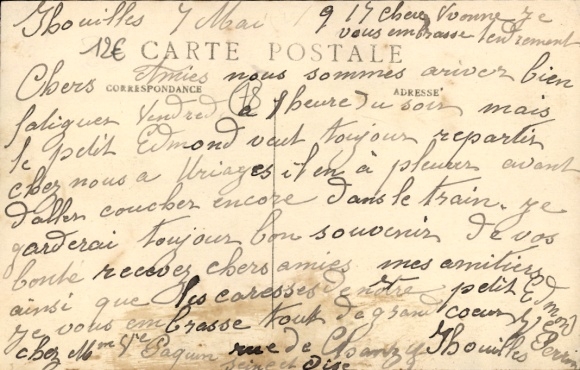 Thouilles 7 Mai 1917 chere Yvonne je
vous embrasse tendrement
12€
CARTE POSTALE
Chers Amies nous sommes ariver bien
CORRESPONDANCE
ADRESSE
78
fatiguer Vendredi a 9 heure du soir mais
le petit Edmond veut toujour repartir
chez nous a Uriages il en à pleurer avant
d'aller coucher encore dans le train. je
garderai toujour bon souvenir de vos
bonté recevez chers amies mes amitiers
ainsi que les caresses de notre petit Edmond
je vous embrasse tout de grand coeur
chez Mme Vve Paquin rue de Chanzy Thouilles
Seine et Oise
Perrin